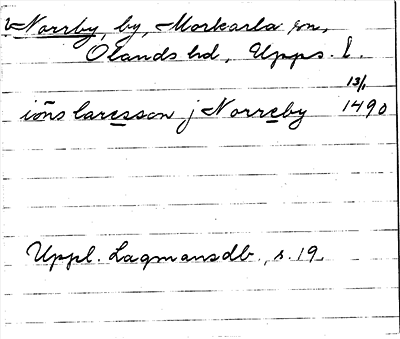 Norrby, by, Morkarla sn,
Olands hd, Upps. l.
13/1
iōns laresson j Norreby 1490
Uppl. Lagmansdb., s. 19